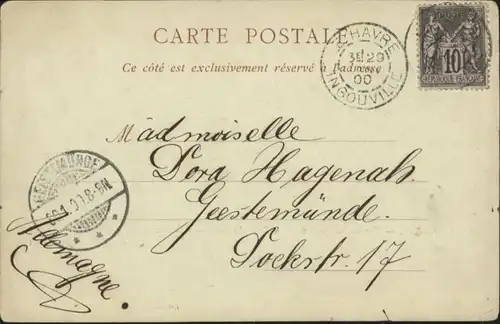 CARTE POSTALE
Ce côté est exclusivement réservé à l'adresse
LE HAVRE
INGOUVILLE
00
POSTES
10
Mademoiselle
Dora Hagenah
Geestemünde
Dockstr. 17
GEESTEMÜNDE
8-9N
Allemagne.